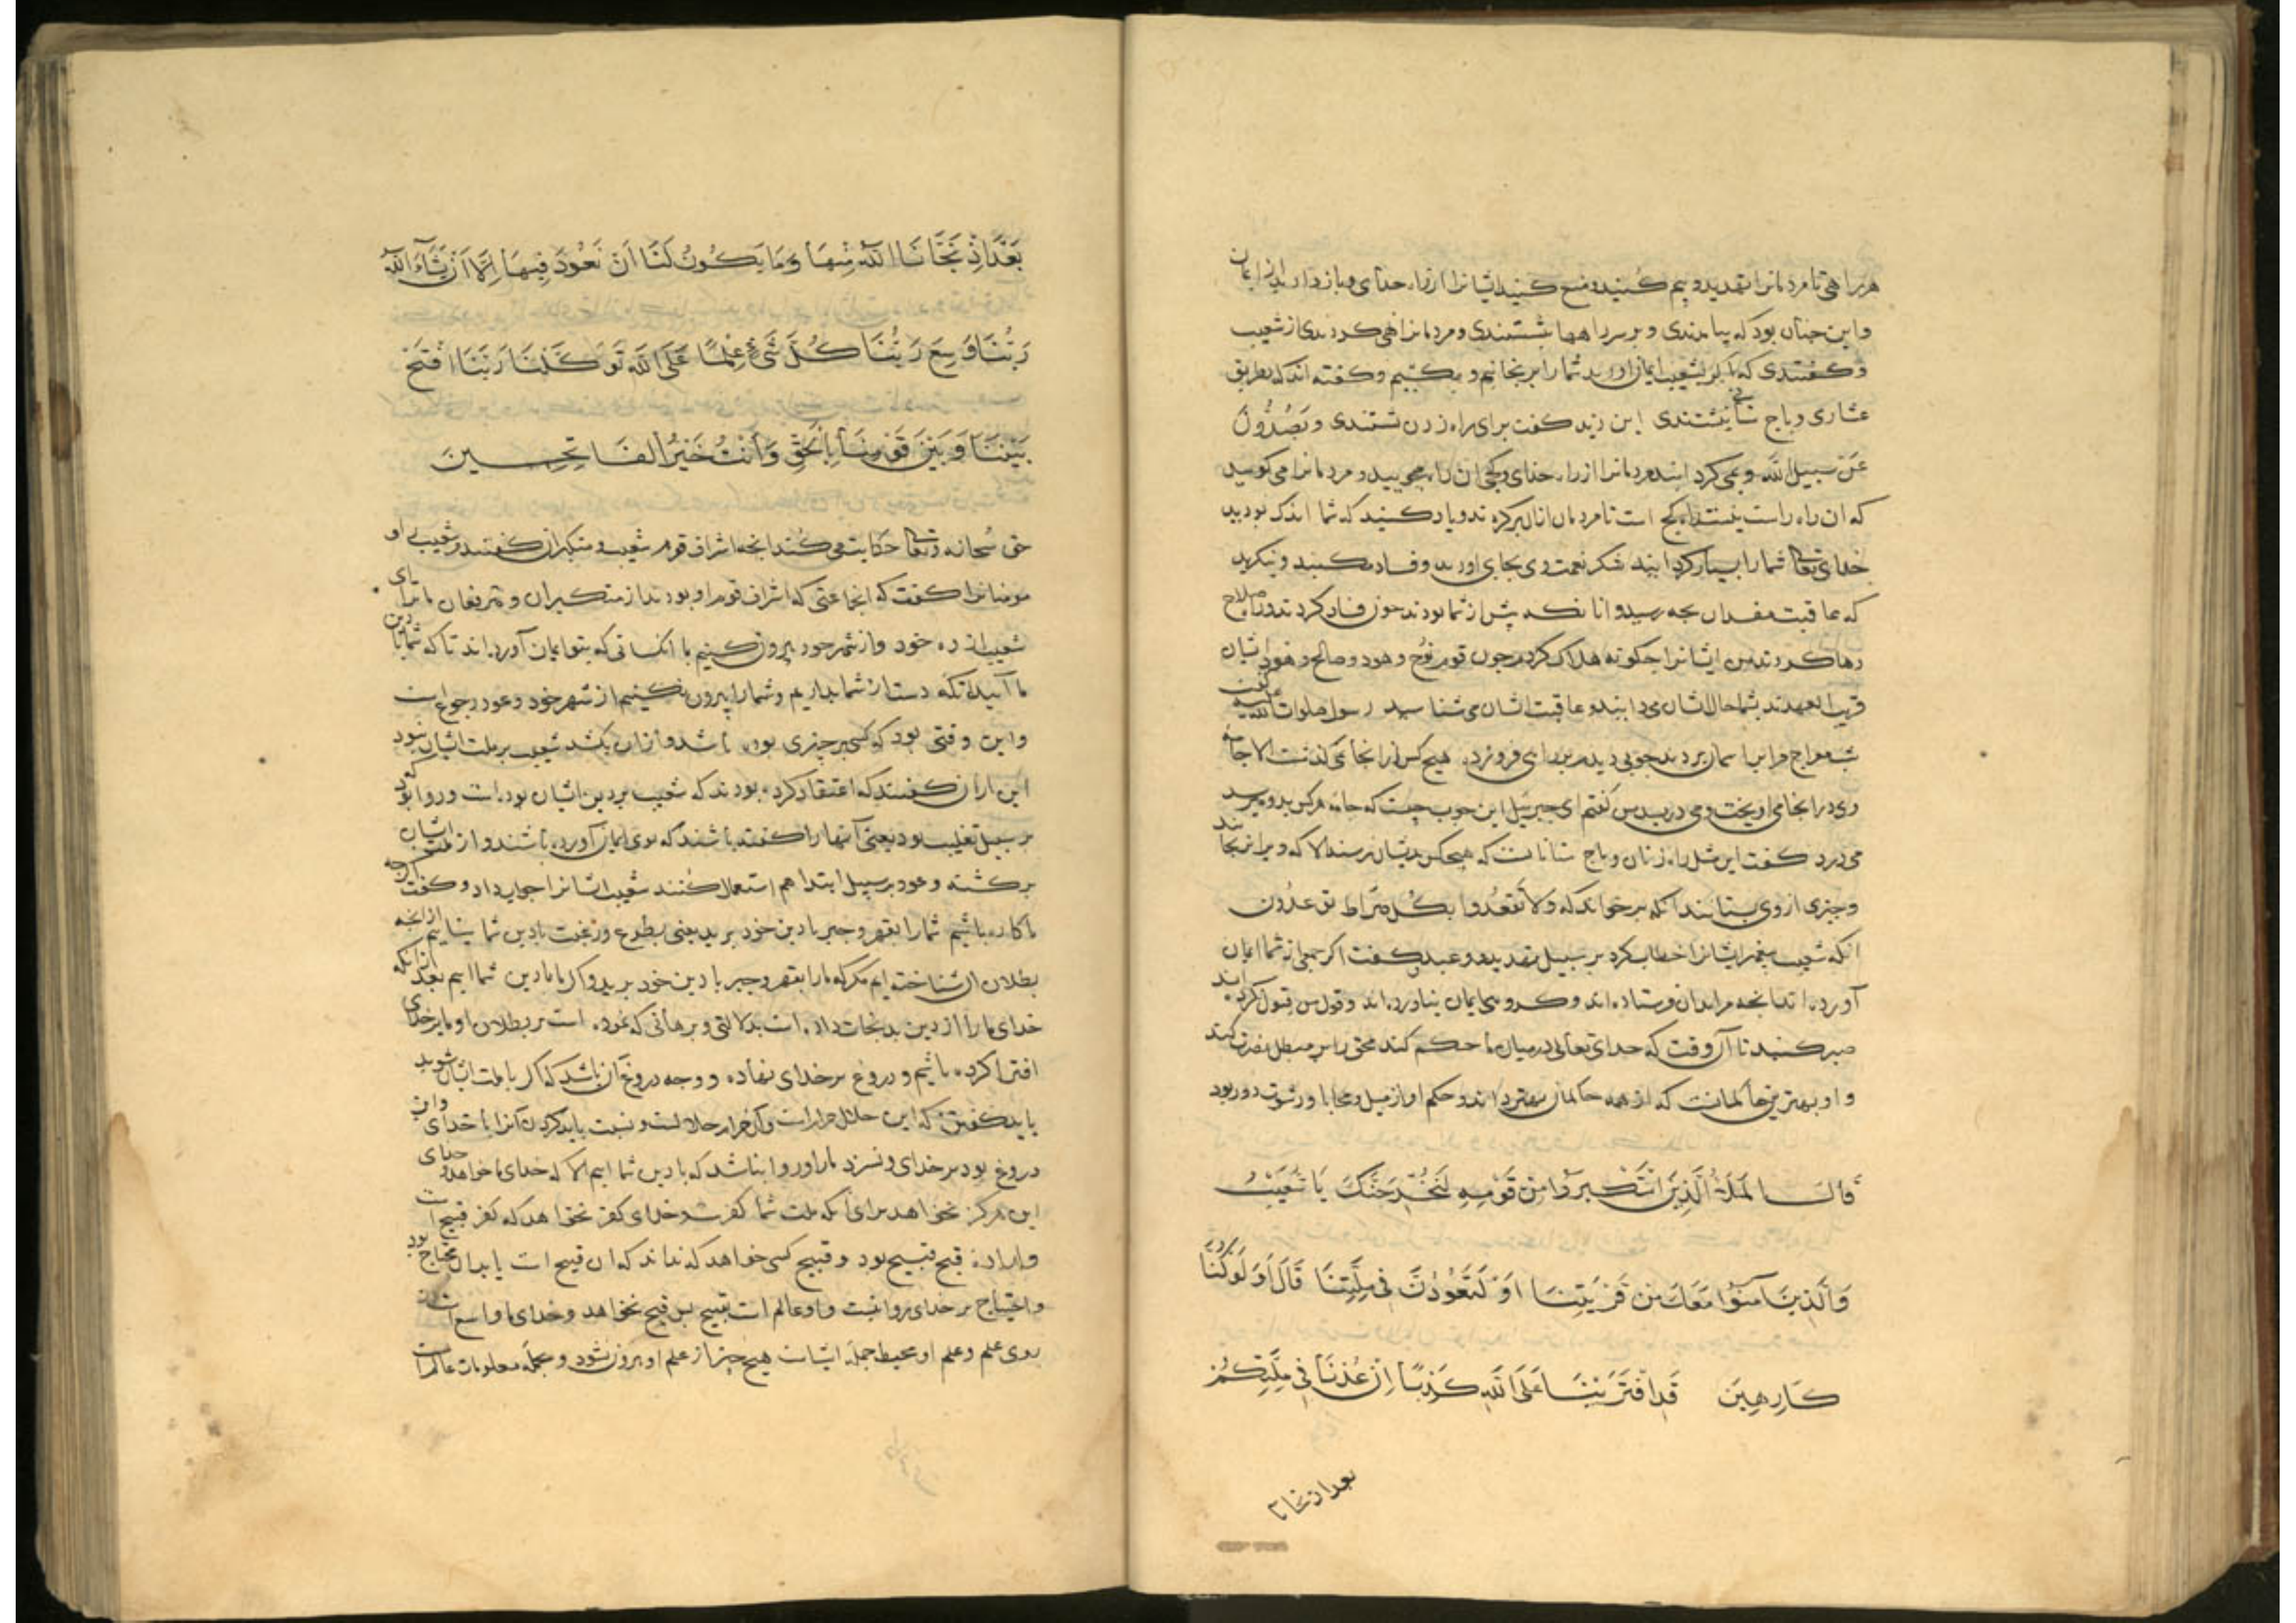 هر راهی تا مردمانرا تهدید و بیم کنید و منع کنید ایشانرا از راه خدای و باز دارید از ایمان
و این چنان بود که بیامدندی و بر سر راهها بنشستندی و مردمانرا نهی کردندی از شعیب
و گفتندی که اگر بشعیب ایمان اورید شما را برنجانیم و بکشیم و گفته اند که بطریق
عشاری و باج ستانی بنشستندی ابن زید گفت برای راه زدن نشستندی وَتَصُدُّونَ
عَنْ سبیل اللّه و می کردانید مردمانرا از راه خدای و کجی ان راه میجویید و مردمانرا می کویید
که ان راه راست نیست و کج است تا مردمان ازان برکردند و یاد کنید که شما اندک بودید
خدای تعالی شما را بسیار کردانید شکر نعمت وی بجای اورید و فساد مکنید و بنکرید
که عاقبت مفسدان بچه رسید و انانکه پیش از شما بودند چون فساد کردند و صلاح
رها کردند من ایشانرا چکونه هلاک کردم چون قوم نوح و هود و صالح و هود ایشان
قریب العهدند بشما حال ایشان می دانید و عاقبت ایشان می شناسید رسول صلوات اللّه علیه گفت
شب معراج مرا بر اسمان بردند چوبی دیدم بر راهی فرو زده هیچ کس از انجا می نگذشت الا جامه
وی در انجا می اویخت و می درید من گفتم ای جبرئیل این چوب چیست که جامه هر کس بدو میرسد
می درد گفت این مثل راه زنان و باج ستانانست که هیچکس بدیشان نرسند الا که ویرا برنجانند
و چیزی از وی بستانند انکه برخواند که وَلا تَقْعُدُوا بِکُلِّ صِراطٍ توعدون
انکه شعیب پیغمبر ایشانرا خطاب کرد بر سبیل تهدید و وعید و گفت اگر جمعی از شما ایمان
آورده اند بانچه مرا بدان فرستاده اند و کروهی ایمان نیاورده اند و قول من قبول نکرده اند
صبر کنید تا آن وقت که خدای تعالی در میان ما حکم کند محق را بر مبطل نصرت کند
و او بهترین حاکمانست که از همه حاکمان بهتر داند و حکم او از میل و محابا و رشوت دور بود
قَالَ الْمَلَأُ الَّذِينَ اسْتَكْبَرُوا مِنْ قَوْمِهِ لَنُخْرِجَنَّكَ يَا شُعَيْبُ
وَالَّذِينَ آمَنُوا مَعَكَ مِنْ قَرْيَتِنَا أَوْ لَتَعُودُنَّ فِي مِلَّتِنَا قَالَ أَوَلَوْ كُنَّا
كَارِهِينَ قَدِ افْتَرَيْنَا عَلَى اللَّهِ كَذِبًا إِنْ عُدْنَا فِي مِلَّتِكُمْ
بعد اذ نجانا
بَعْدَ إِذْ نَجَّانَا اللَّهُ مِنْهَا وَمَا يَكُونُ لَنَا أَنْ نَعُودَ فِيهَا إِلَّا أَنْ يَشَاءَ اللَّهُ
رَبُّنَا وَسِعَ رَبُّنَا كُلَّ شَيْءٍ عِلْمًا عَلَى اللَّهِ تَوَكَّلْنَا رَبَّنَا افْتَحْ
بَيْنَنَا وَبَيْنَ قَوْمِنَا بِالْحَقِّ وَأَنْتَ خَيْرُ الْفَاتِحِينَ
حق سُبحانه و تعالی حکایت می کُند انچه اشراف قوم شعیب و متکبران گفتند و شعیب او
مومنانرا گفت که انجماعتی که اشراف قوم او بودند از متکبران و مترفعان ما ترا ای
شعیب از ده خود و از شهر خود بیرون کنیم با انکسانی که بتو ایمان آورده اند تا که شما با دین
ما آیید تا که دست از شما بداریم و شما را بیرون نکنیم از شهر خود و عود رجوع است
و این وقتی بود که کسی بر چیزی بوده باشد و از ان بکشد شعیب بر ملت ایشان نبود
این ازان گفتند که اعتقاد کرده بودند که شعیب بر دین ایشان بوده است و روا بود که
بر سبیل تغلیب بود یعنی آنها را گفته باشند که بوی ایمان آورده باشند و از ملت ایشان
برکشته و عود بر سبیل ابتدا هم استعمال کُنند شعیب ایشانرا جواب داد و گفت اکرچه
ما کاره باشیم شما را بقهر و جبر با دین خود برید یعنی بطوع و رغبت با دین شما نیاییم از انچه
بطلان ان شناخته ایم مکر که ما را بقهر و جبر با دین خود برید و اکر ما با دین شما اییم بعد از انکه
خدای ما را از دین بد نجات داده است بدلالتی و برهانی که نموده است بر بطلان او ما بر خدای
افترا کرده باشیم و دروغ بر خدای نهاده و وجه دروغ آن باشد که اکر با ملت ایشان شوید
باید گفتن که این حلال حرام است و آن حرام حلالست و نسبت باید کردن آنرا با خدای و ان
دروغ بود بر خدای و نسزد ما را و روا نباشد که با دین شما اییم الا که خدای ما خواهد و خدای
این هرکز نخواهد برای انکه ملت شما کفر است و خدای کفر نخواهد که کفر قبیح است
و اراده قبیح قبیح بود و قبیح کسی خواهد که نداند که ان قبیح است یا بدان محتاج بود
و احتیاج بر خدای روا نیست و او عالم است بقبیح پس قبیح نخواهد و خدای ما واسع است از
روی علم و علم او محیط جملهٔ اشیاست هیچ چیز از علم او بیرون نشود و بجمله معلومات عالم است